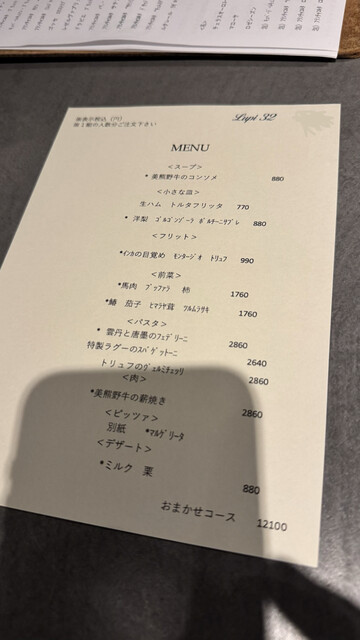 ※表示税込（円）
※１組の人数分ご注文下さい
Lupi 32
MENU
＜スープ＞
*美熊野牛のコンソメ 880
＜小さな皿＞
生ハム トルタフリッタ 770
* 洋梨 ゴルゴンゾーラ ポルチーニサブレ 880
＜フリット＞
*インカの目覚め モンタージオ トリュフ 990
＜前菜＞
*馬肉 ブッファラ 柿 1760
*鰆 茄子 ヒマラヤ茸 ツルムラサキ 1760
＜パスタ＞
* 雲丹と唐墨のフェデリーニ 2860
特製ラグーのスパゲットーニ 2640
トリュフのヴェルミチェッリ 2860
＜肉＞
*美熊野牛の薪焼き 2860
＜ピッツァ＞
別紙 *マルゲリータ
＜デザート＞
*ミルク 栗 880
おまかせコース 12100